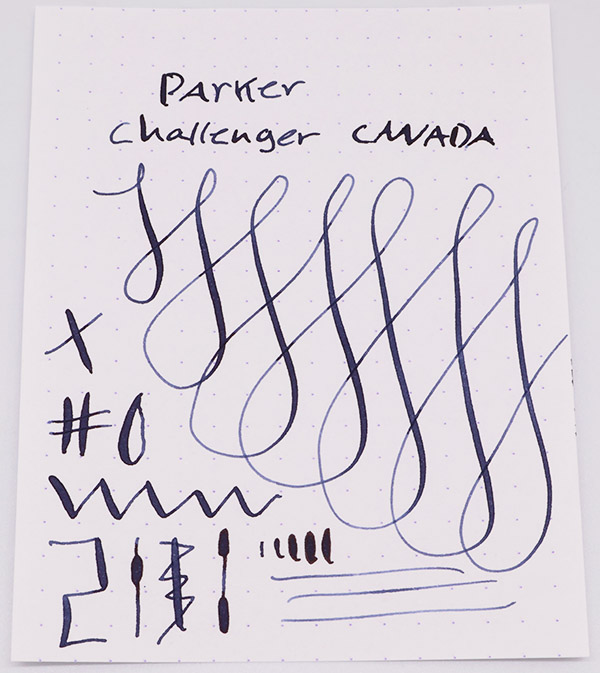 Parker
Challenger CANADA
X
#0